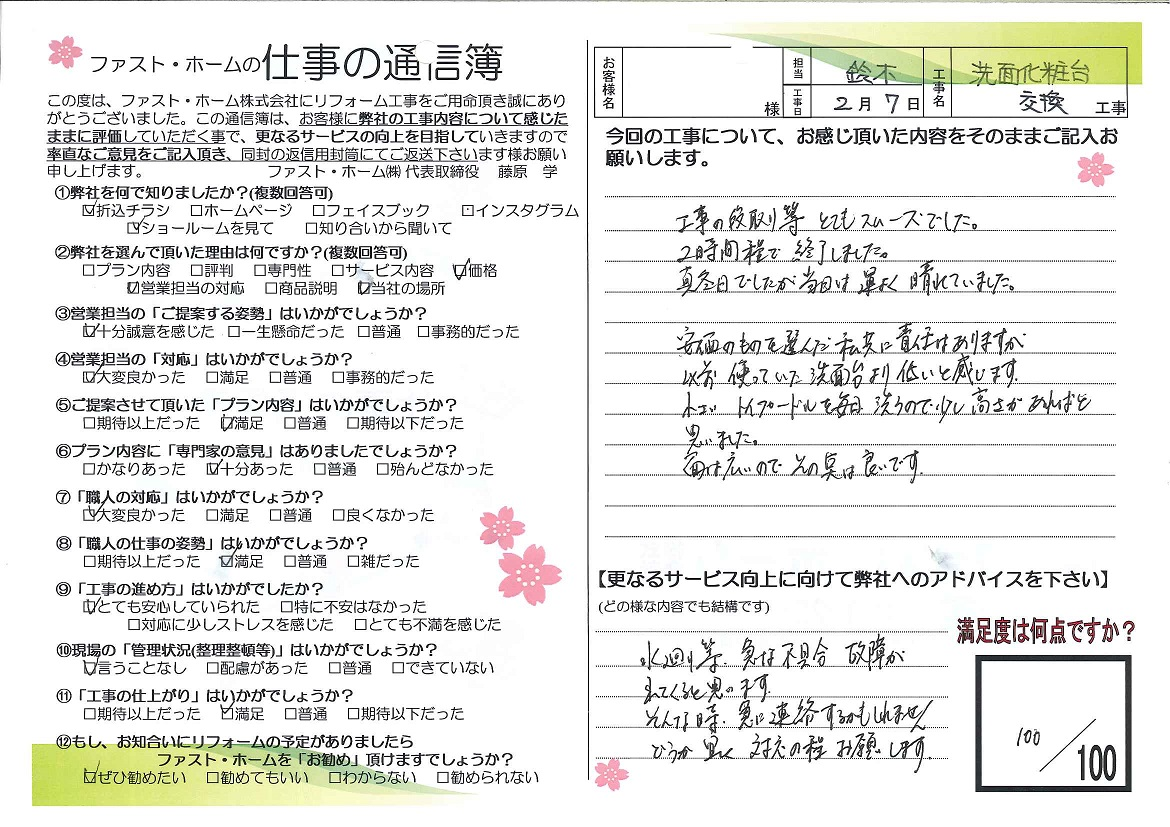 ファスト・ホームの仕事の通信簿
この度は、ファスト・ホーム株式会社にリフォーム工事をご用命頂き誠にあり
がとうございました。この通信簿は、お客様に弊社の工事内容について感じた
ままに評価していただく事で、更なるサービスの向上を目指していきますので
率直なご意見をご記入頂き、同封の返信用封筒にてご返送下さいます様お願い
申し上げます。 ファスト・ホーム㈱ 代表取締役 藤原 学
①弊社を何で知りましたか？(複数回答可)
☑折込チラシ □ホームページ □フェイスブック □インスタグラム
☑ショールームを見て □知り合いから聞いて
②弊社を選んで頂いた理由は何ですか？(複数回答可)
□プラン内容 □評判 □専門性 □サービス内容 ☑価格
☑営業担当の対応 □商品説明 ☑当社の場所
③営業担当の「ご提案する姿勢」はいかがでしょうか？
☑十分誠意を感じた □一生懸命だった □普通 □事務的だった
④営業担当の「対応」はいかがでしょうか？
☑大変良かった □満足 □普通 □事務的だった
⑤ご提案させて頂いた「プラン内容」はいかがでしょうか？
□期待以上だった ☑満足 □普通 □期待以下だった
⑥プラン内容に「専門家の意見」はありましたでしょうか？
□かなりあった ☑十分あった □普通 □殆んどなかった
⑦「職人の対応」はいかがでしょうか？
☑大変良かった □満足 □普通 □良くなかった
⑧「職人の仕事の姿勢」はいかがでしょうか？
□期待以上だった ☑満足 □普通 □雑だった
⑨「工事の進め方」はいかがでしたか？
☑とても安心していられた □特に不安はなかった
□対応に少しストレスを感じた □とても不満を感じた
⑩現場の「管理状況(整理整頓等)」はいかがでしょうか？
☑言うことなし □配慮があった □普通 □できていない
⑪「工事の仕上がり」はいかがでしょうか？
□期待以上だった ☑満足 □普通 □期待以下だった
⑫もし、お知合いにリフォームの予定がありましたら
ファスト・ホームを「お勧め」頂けますでしょうか？
☑ぜひ勧めたい □勧めてもいい □わからない □勧められない
お客様名 様 担当 鈴木 工事日 2月7日 工事名 洗面化粧台 交換 工事
今回の工事について、お感じ頂いた内容をそのままご記入お
願いします。
工事の段取り等 とてもスムーズでした。
2時間程で 終了しました。
真冬日でしたが当日は 運よく 晴れていました。
安価のものを選んだ 私共に責任はありますが
以前 使っていた 洗面台より 低いと感じます。
トイプードルを毎日 洗うので少し 高さがあればと
思いました。
面は広いので その点は良いです。
【更なるサービス向上に向けて弊社へのアドバイスを下さい】
(どの様な内容でも結構です)
水廻り等、急な不具合 故障が
出てくると思います。
そんな時、急に連絡するかもしれません
どうか 宜しく 対応の程 お願いします。
満足度は何点ですか？
100/100